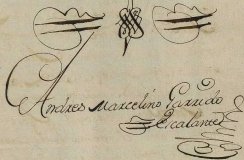 Andres Marcelino Garrido
Escalante